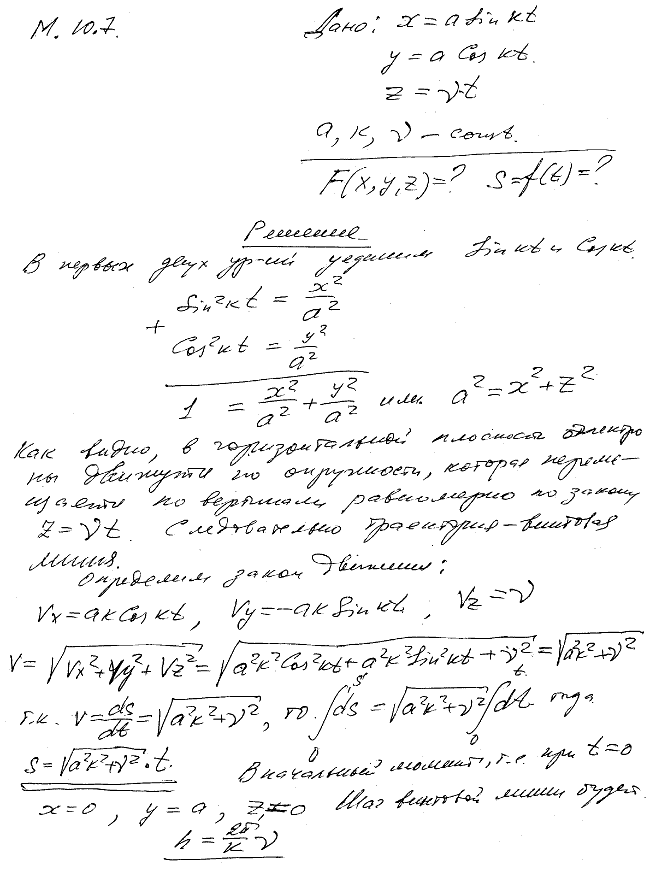 М. 10.7.
Дано: x = a Sin кt
y = a Cos кt.
z = νt
a, к, ν – const.
F(x, y, z) = ? S = f(t) = ?
Решение
В первых двух ур-ий уединим Sin кt и Cos кt.
Sin²кt = x²/a²
+
Cos²кt = y²/a²
1 = x²/a² + y²/a² или a² = x² + z²
Как видно, в горизонтальной плоскости электро
ны движутся по окружности, которая переме-
щается по вертикали равномерно по закону
Z = νt. Следовательно траектория – винтовая
линия.
Определим закон движения:
Vx = aк Cos кt, Vy = –aк Sin кt, Vz = ν
V = √(Vx² + Vy² + Vz²) = √(a²к² Cos²кt + a²к² Sin²кt + ν²) = √(a²к² + ν²)
т.к. V = ds/dt = √(a²к² + ν²), то ∫₀ˢ ds = √(a²к² + ν²) ∫₀ᵗ dt тогда
S = √(a²к² + ν²) · t. В начальный момент, т.е. при t = 0
x = 0, y = a, z = 0 Шаг винтовой линии будет
h = 2π/к ν